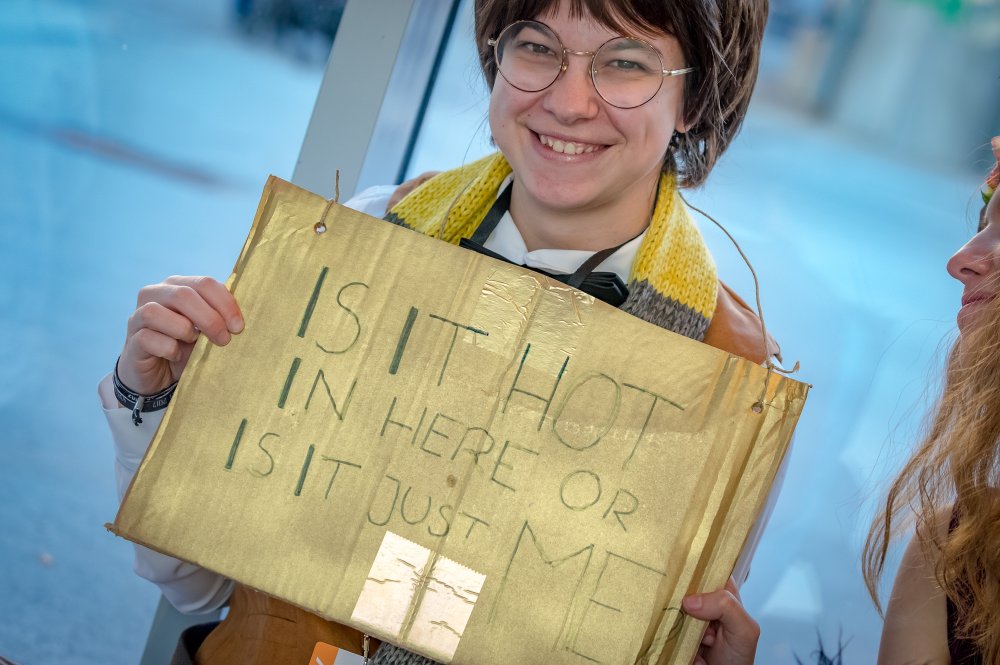 IS IT HOT
IN HERE OR
IS IT JUST ME